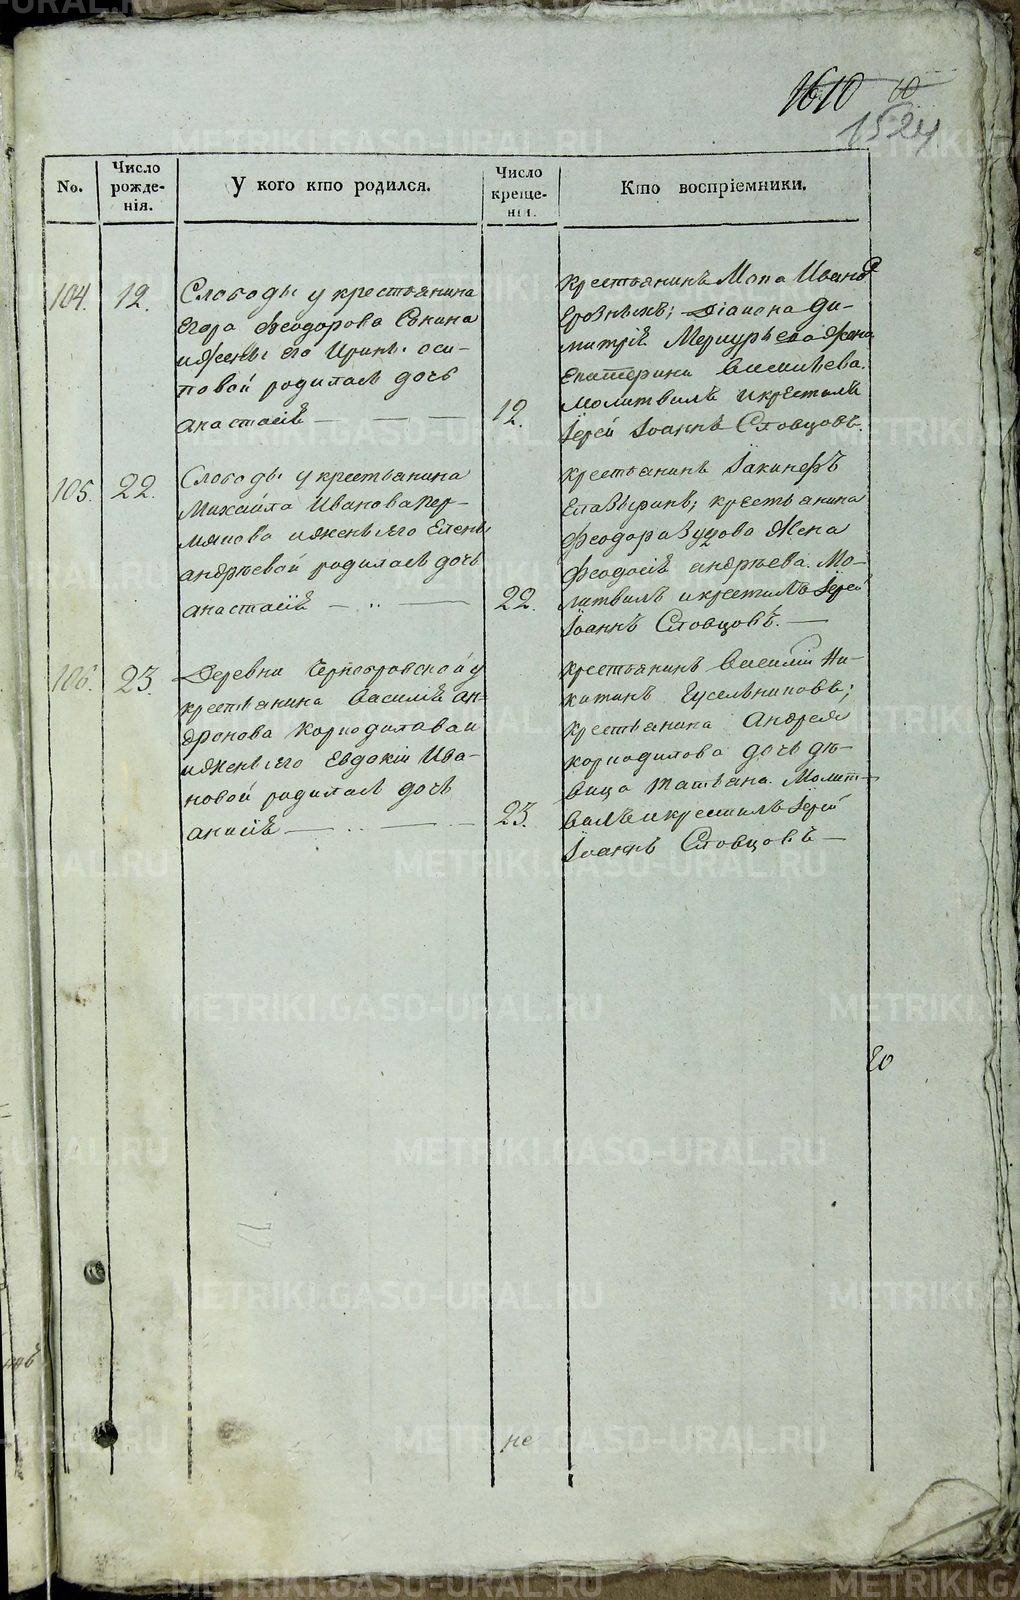 1610 10
1524
No.
Число рожде-нія.
У кого кто родился.
Число креще-ніи.
Кто воспріемники.
104. 12.
Слободы у крестьянина
Егора Феодорова
и жены его Ирины Оси-
повой родилась дочь
анастасія
12.
крестьянинъ Иванъ
діакона Ди-
митрія жена
Екатерина Васильева.
Молитвилъ и крестилъ
Іерей Іоаннъ Словцовъ.
105. 22.
Слободы у крестьянина
Михаила Иванова Пер-
мякова и жены его Елены
андреевой родилась дочь
анастасія
22.
крестьянинъ Іакинфъ
крестьянина
Феодора жена
Феодосія андреева. Мо-
литвилъ и крестилъ Іерей
Іоаннъ Словцовъ.
106. 23.
Деревни у
крестьянина Василія Ан-
дронова Корнодилова
и жены его Евдокіи Ива-
новой родилась дочь
анисія
23.
крестьянинъ Василій Ни-
китинъ Гусельниковъ;
крестьянина Андрея
дочь дѣ-
вица Татьяна. Молит-
вилъ и крестилъ Іерей
Іоаннъ Словцовъ
не
METRIKI.GASO-URAL.RU